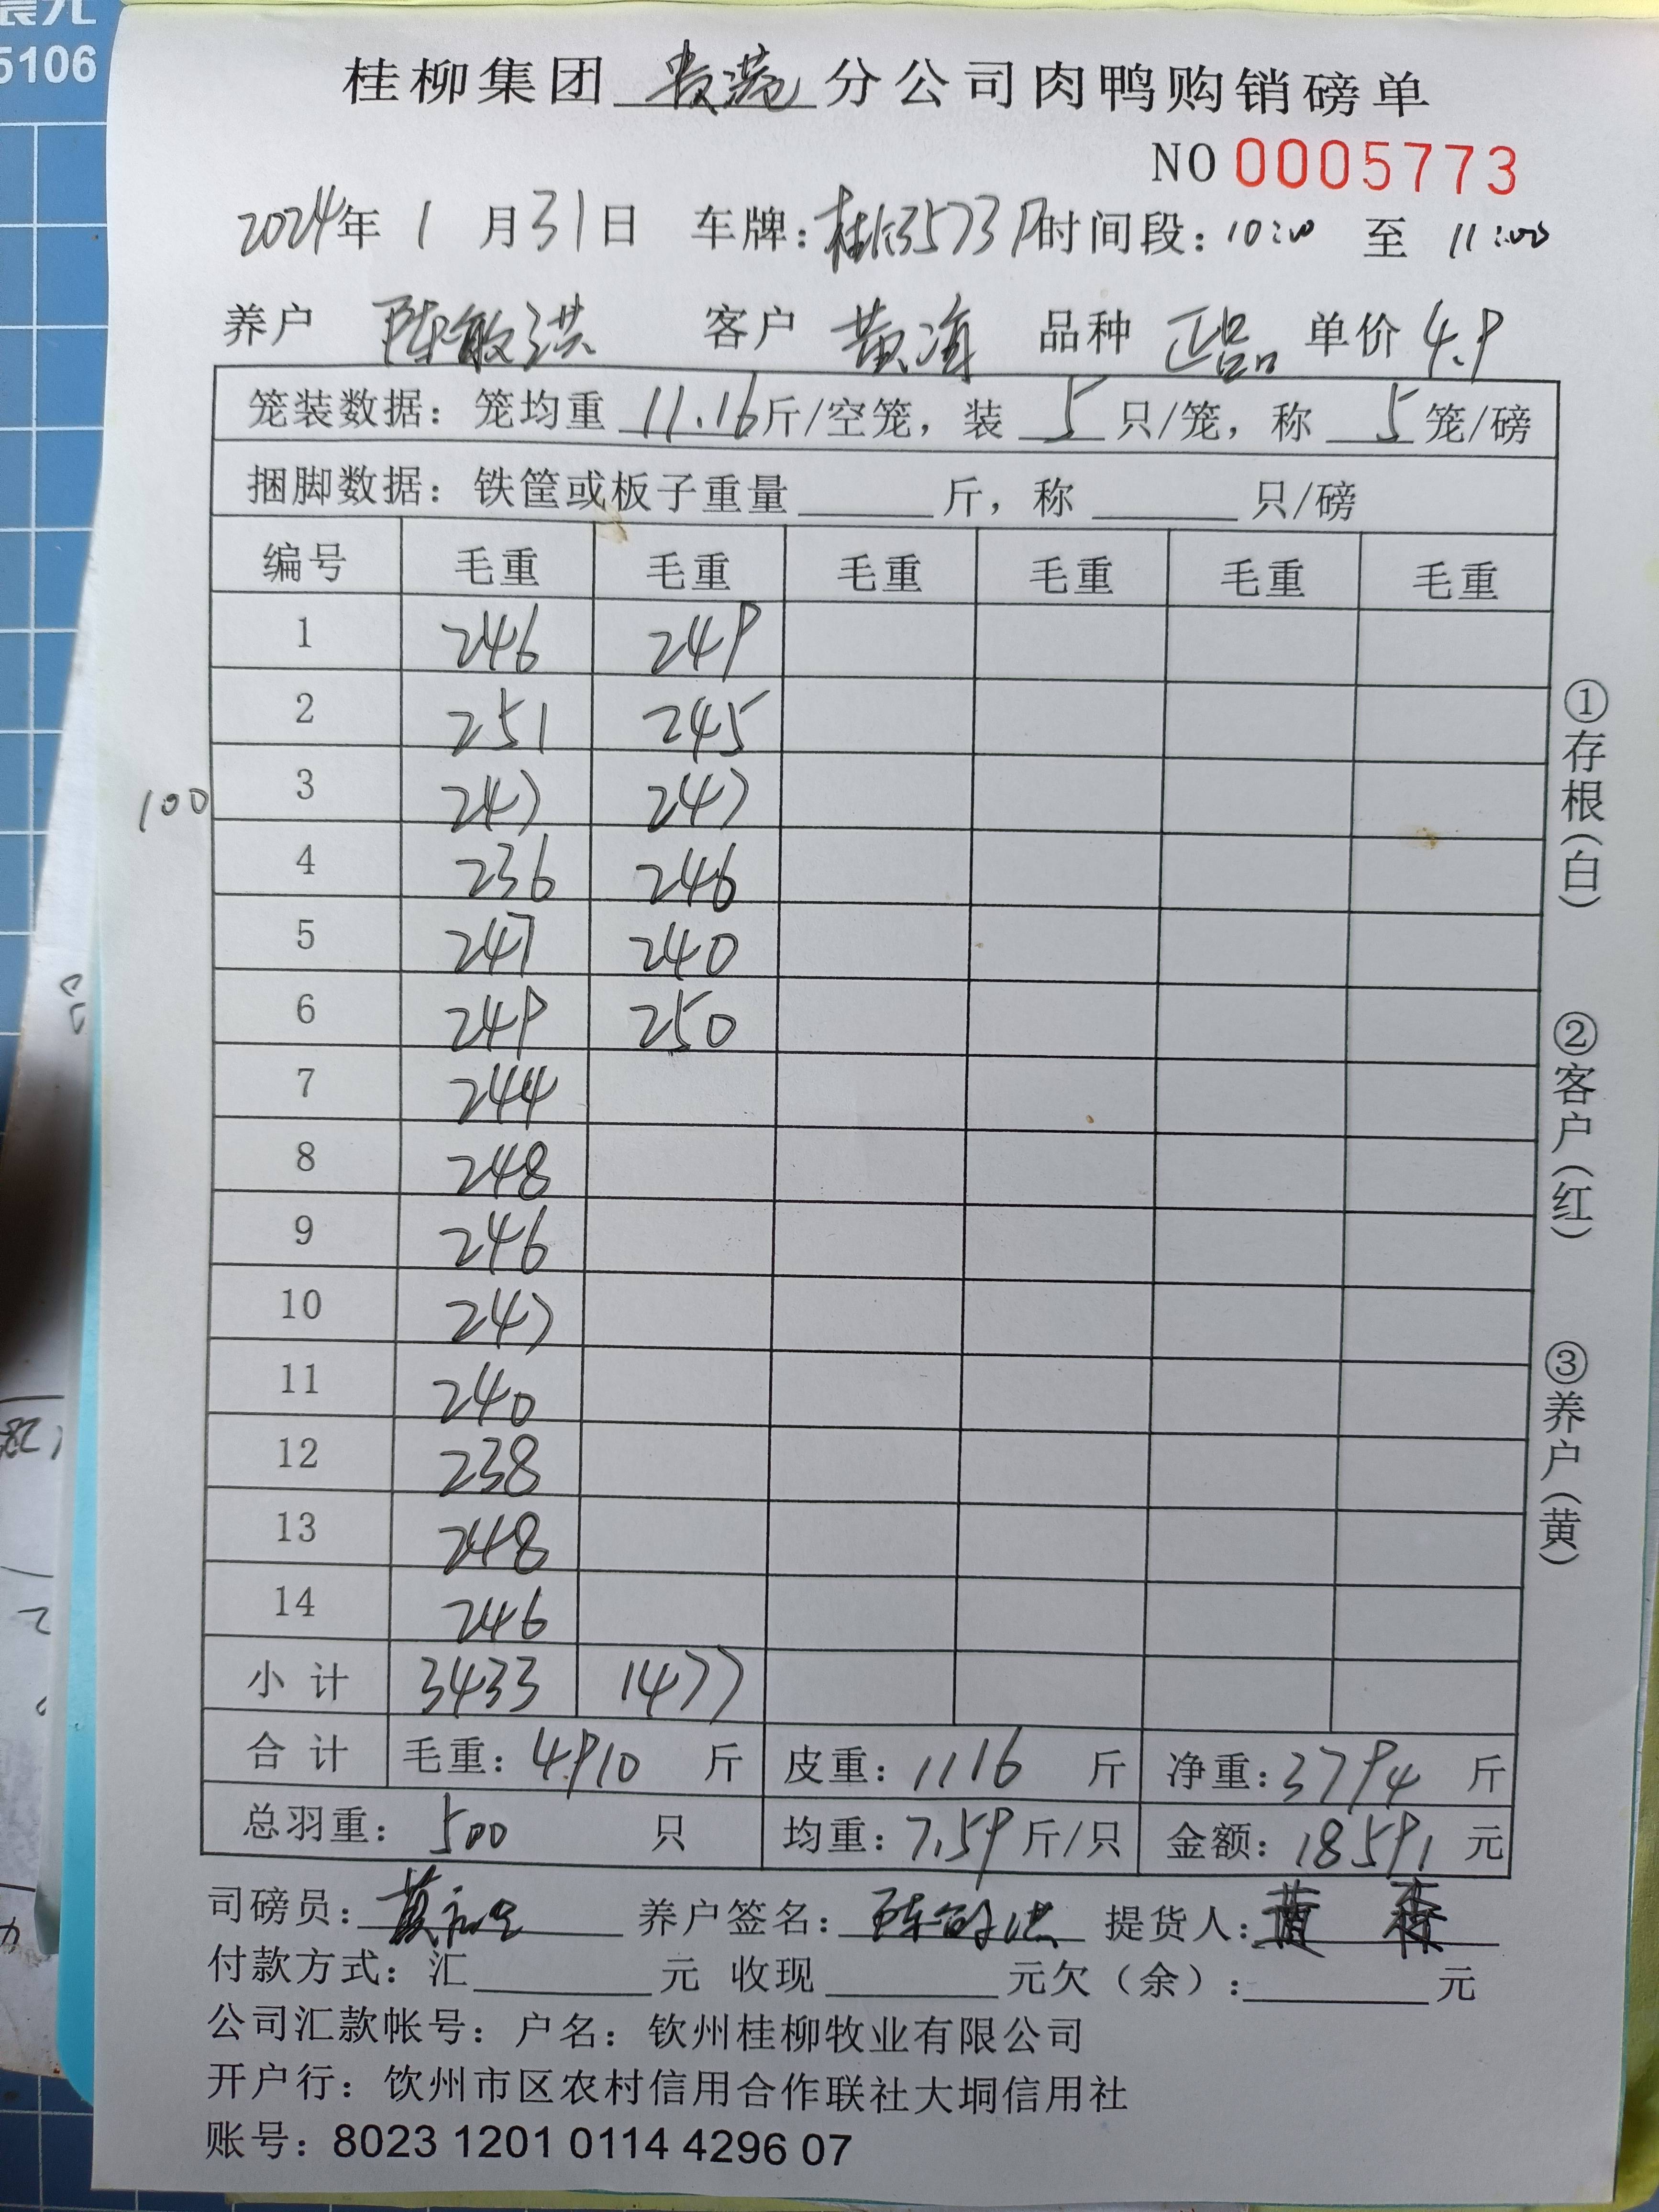 5106
桂柳集团 贵港 分公司肉鸭购销磅单
NO 0005773
2024年 1 月31日 车牌: 时间段: 10:20 至 11:00
养户 陈敏洪 客户 黄海 品种 正品 单价 4.9
笼装数据: 笼均重 11.16斤/空笼, 装 5 只/笼, 称 5 笼/磅
捆脚数据: 铁筐或板子重量______斤, 称______只/磅
编号 毛重 毛重 毛重 毛重 毛重 毛重
1 246 249
2 251 245
100 3 247 247
4 236 246
5 247 240
6 249 250
7 244
8 248
9 246
10 247
11 240
12 238
13 248
14 246
小计 3433 1477
合计 毛重: 4910 斤 皮重: 1116 斤 净重: 3794 斤
总羽重: 500 只 均重: 7.59 斤/只 金额: 18591 元
司磅员: 养户签名: 陈敏洪 提货人: 黄
付款方式: 汇______元 收现______元欠(余):______元
公司汇款帐号: 户名: 钦州桂柳牧业有限公司
开户行: 钦州市区农村信用合作联社大垌信用社
账号: 8023 1201 0114 4296 07
①存根(白)
②客户(红)
③养户(黄)